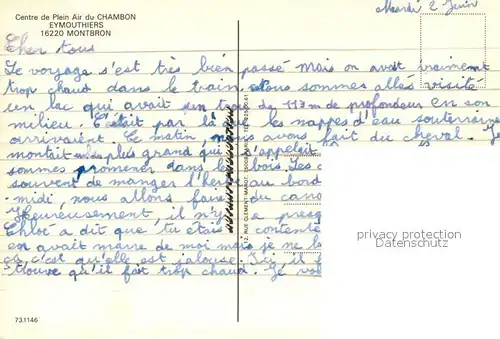 Centre de Plein Air du CHAMBON
EYMOUTHIERS
16220 MONTBRON
Mardi 2 Juin
Cher tous
Le voyage s'est très bien passé mais on avait vraiment
trop chaud dans le train. Nous sommes allés visité
un lac qui avait un trou de 113 m de profondeur en son
milieu. C'était par là que les nappes d'eau souterraine
arrivaient. Ce matin, nous avons fait du cheval. Je
montait un plus grand qui s'appelait
sommes promener dans les bois. Les c
souvent de manger l'herbe au bord
-midi, nous allons faire du cano
Heureusement, il n'y a presq
Chloé a dit que tu étais contente
en avait marre de moi mais je ne l
ça, c'est qu'elle est jalouse. Ici, il f
trouve qu'il fait trop chaud. Je vo
2, RUE CLEMENT-MAROT, 75008 PARIS
privacy protection
Datenschutz
73.1146